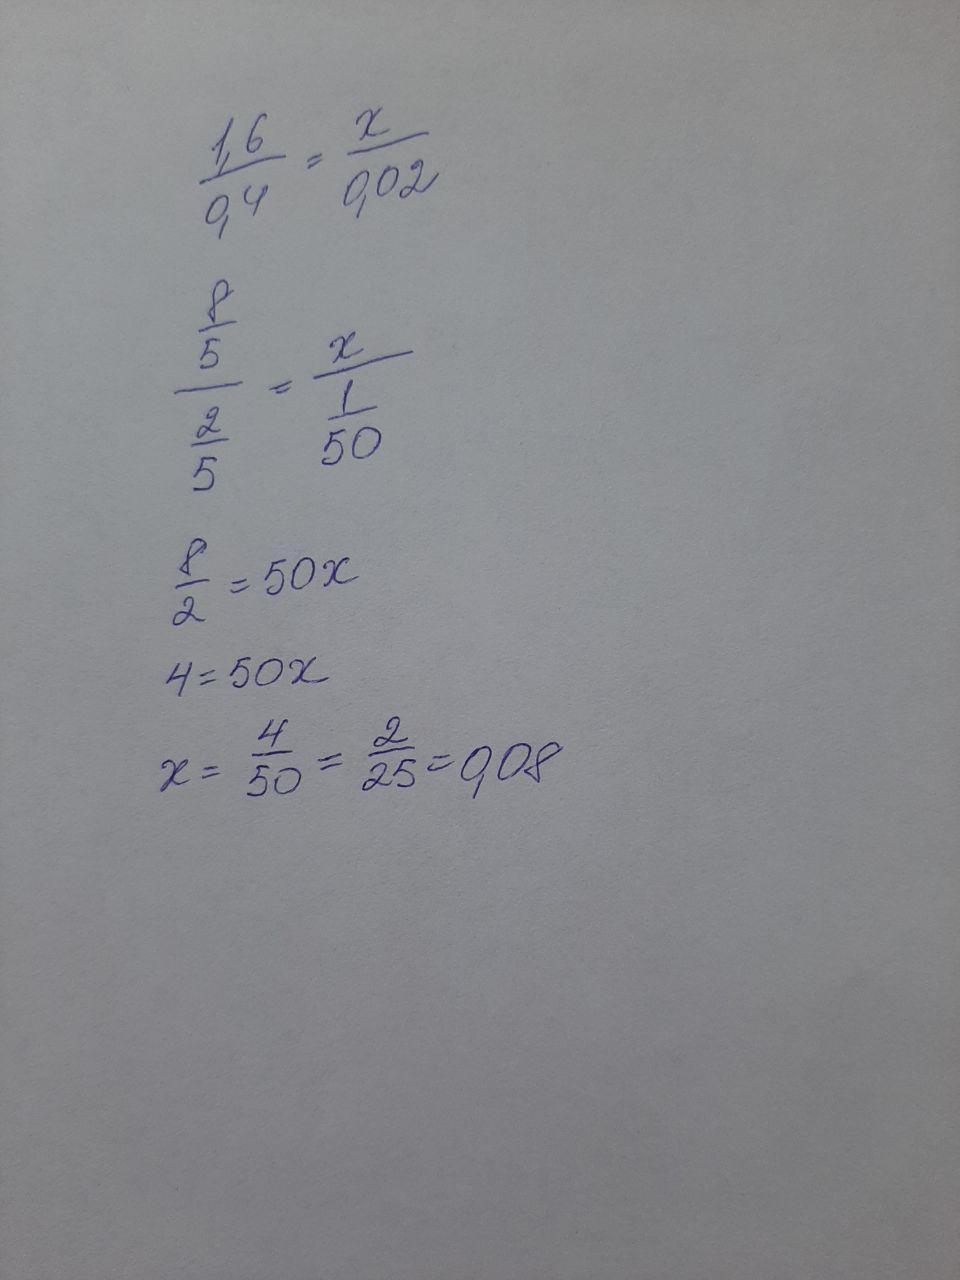 1,6/0,4 = x/0,02
8/5 / 2/5 = x / 1/50
8/2 = 50x
4 = 50x
x = 4/50 = 2/25 = 0,08